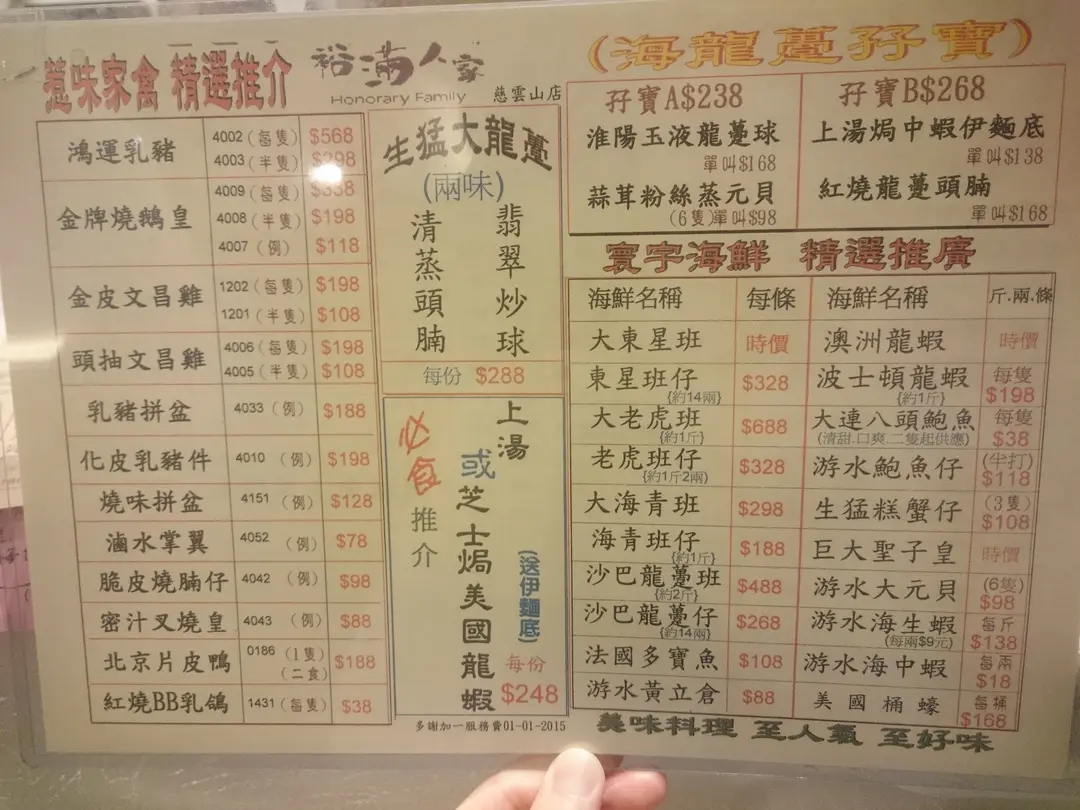 惹味家禽 精選推介
裕滿人家
Honorary Family
慈雲山店
鴻運乳豬 4002 (每隻) $568
4003 (半隻) $298
金牌燒鵝皇 4009 (每隻)
4008 (半隻) $198
4007 (例) $118
金皮文昌雞 1202 (每隻) $198
1201 (半隻) $108
頭抽文昌雞 4006 (每隻) $198
4005 (半隻) $108
乳豬拼盆 4033 (例) $188
化皮乳豬件 4010 (例) $198
燒味拼盆 4151 (例) $128
滷水掌翼 4052 (例) $78
脆皮燒腩仔 4042 (例) $98
密汁叉燒皇 4043 (例) $88
北京片皮鴨 0186 (1隻) $188
(二食)
紅燒BB乳鴿 1431 (每隻) $38
生猛大龍躉
(兩味)
翡翠炒球
清蒸頭腩
每份 $288
上湯
或芝士焗美國龍蝦
必食
推介
(送伊麵底)
每份
$248
多謝加一服務費01-01-2015
(海龍躉孖寶)
孖寶A$238
淮陽玉液龍躉球
單叫$168
蒜茸粉絲蒸元貝
(6隻)單叫$98
孖寶B$268
上湯焗中蝦伊麵底
單叫$138
紅燒龍躉頭腩
單叫$168
寰宇海鮮 精選推廣
海鮮名稱 每條
大東星班 時價
東星班仔 $328
(約14兩)
大老虎班 $688
(約1斤)
老虎班仔 $328
(約1斤2兩)
大海青班 $298
海青班仔 $188
(約1斤)
沙巴龍躉班 $488
(約2斤)
沙巴龍躉仔 $268
(約14兩)
法國多寶魚 $108
游水黃立倉 $88
海鮮名稱 斤.兩.條
澳洲龍蝦 時價
波士頓龍蝦 每隻
(約1斤) $198
大連八頭鮑魚 每隻
(清甜.口爽.二隻起供應) $38
游水鮑魚仔 (半打)
$118
生猛糕蟹仔 (3隻)
$108
巨大聖子皇 時價
游水大元貝 (6隻)
$98
游水海生蝦 每斤
(每兩$9元) $138
游水海中蝦 每兩
$18
美國桶蠔 每桶
$168
美味料理 至人氣 至好味